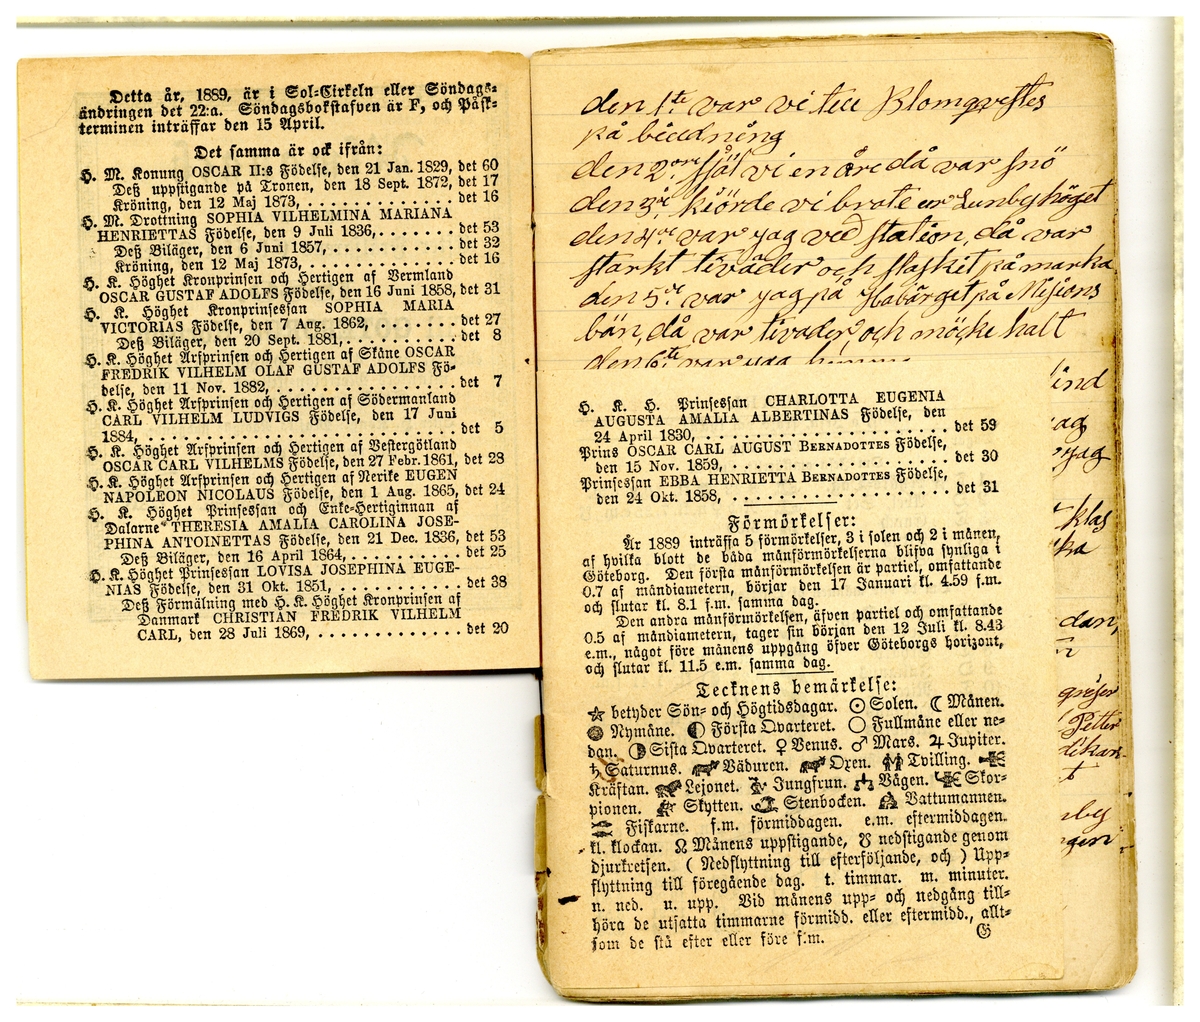 Detta år, 1889, är i Sol-Cirkeln eller Söndags-
ändringen det 22:a. Söndagsbokstafven är F, och Påsk-
terminen inträffar den 15 April.
Det samma är ock ifrån:
H. M. Konung OSCAR II:s Födelse, den 21 Jan. 1829, det 60
Deß uppstigande på Tronen, den 18 Sept. 1872, det 17
Kröning, den 12 Maj 1873, . . . . . . . . . . . . . . . det 16
H. M. Drottning SOPHIA VILHELMINA MARIANA
HENRIETTAS Födelse, den 9 Juli 1836, . . . . . . . det 53
Deß Biläger, den 6 Juni 1857, . . . . . . . . . . . . det 32
Kröning, den 12 Maj 1873, . . . . . . . . . . . . . . . det 16
H. K. Höghet Kronprinsen och Hertigen af Vermland
OSCAR GUSTAF ADOLFS Födelse, den 16 Juni 1858, det 31
H. K. Höghet Kronprinsessan SOPHIA MARIA
VICTORIAS Födelse, den 7 Aug. 1862, . . . . . . . . det 27
Deß Biläger, den 20 Sept. 1881, . . . . . . . . . . . det 8
H. K. Höghet Arfprinsen och Hertigen af Skåne OSCAR
FREDRIK VILHELM OLAF GUSTAF ADOLFS Fö-
delse, den 11 Nov. 1882, . . . . . . . . . . . . . . . . det 7
H. K. Höghet Arfprinsen och Hertigen af Södermanland
CARL VILHELM LUDVIGS Födelse, den 17 Juni
1884, . . . . . . . . . . . . . . . . . . . . . . . . . . . det 5
H. K. Höghet Arfprinsen och Hertigen af Vestergötland
OSCAR CARL VILHELMS Födelse, den 27 Febr. 1861, det 28
H. K. Höghet Arfprinsen och Hertigen af Nerike EUGEN
NAPOLEON NICOLAUS Födelse, den 1 Aug. 1865, det 24
H. K. Höghet Prinsessan och Enke-Hertiginnan af
Dalarne THERESIA AMALIA CAROLINA JOSE-
PHINA ANTOINETTAS Födelse, den 21 Dec. 1836, det 53
Deß Biläger, den 16 April 1864, . . . . . . . . . . . det 25
H. K. Höghet Prinsessan LOVISA JOSEPHINA EUGE-
NIAS Födelse, den 31 Okt. 1851, . . . . . . . . . . . det 38
Deß Förmälning med H. K. Höghet Kronprinsen af
Danmark CHRISTIAN FREDRIK VILHELM
CARL, den 28 Juli 1869, . . . . . . . . . . . . . . det 20
den 1te var vi till Blomqvistes
på biudning
den 2re vi en åre då var snö
den 3re kiörde vi brate er Lunbyhöget
den 4re var jag ved station, då var
starkt tiväder och slasket på marka
den 5te var jag på Habärget på Misions
bön, då var tivader, och möcke halt
den 6te var jag
H. K. H. Prinsessan CHARLOTTA EUGENIA
AUGUSTA AMALIA ALBERTINAS Födelse, den
24 April 1830, . . . . . . . . . . . . . . . . . . . . . det 59
Prins OSCAR CARL AUGUST BERNADOTTES Födelse,
den 15 Nov. 1859, . . . . . . . . . . . . . . . . . . det 30
Prinsessan EBBA HENRIETTA BERNADOTTES Födelse,
den 24 Okt. 1858, . . . . . . . . . . . . . . . . . . det 31
Förmörkelser:
År 1889 inträffa 5 förmörkelser, 3 i solen och 2 i månen,
af hvilka blott de båda månförmörkelserna blifva synliga i
Göteborg. Den första månförmörkelsen är partiel, omfattande
0.7 af måndiametern, börjar den 17 Januari kl. 4.59 f.m.
och slutar kl. 8.1 f.m. samma dag.
Den andra månförmörkelsen, äfven partiel och omfattande
0.5 af måndiametern, tager sin början den 12 Juli kl. 8.43
e.m., något före månens uppgång öfver Göteborgs horizont,
och slutar kl. 11.5 e.m. samma dag.
Tecknens bemärkelse:
betyder Sön- och Högtidsdagar. ☉ Solen. ☾ Månen.
Nymåne. ◐ Första Qvarteret. ○ Fullmåne eller ne-
dan. ◑ Sista Qvarteret. ♀ Venus. ♂ Mars. ♃ Jupiter.
♄ Saturnus. Väduren. Oxen. Tvilling.
Kräftan. Lejonet. Jungfrun. Vågen. Skor-
pionen. Skytten. Stenbocken. Vattumannen.
Fiskarne. f.m. förmiddagen. e.m. eftermiddagen.
kl. klockan. ☊ Månens uppstigande, ☋ nedstigande genom
djurkretsen. ( Nedflyttning till efterföljande, och ) Upp-
flyttning till föregående dag. t. timmar. m. minuter.
n. ned. u. upp. Vid månens upp- och nedgång till-
höra de utsatta timmarne förmidd. eller eftermidd., allt-
som de stå efter eller före f.m.
G
ind
jag
klas
dan,
Petter